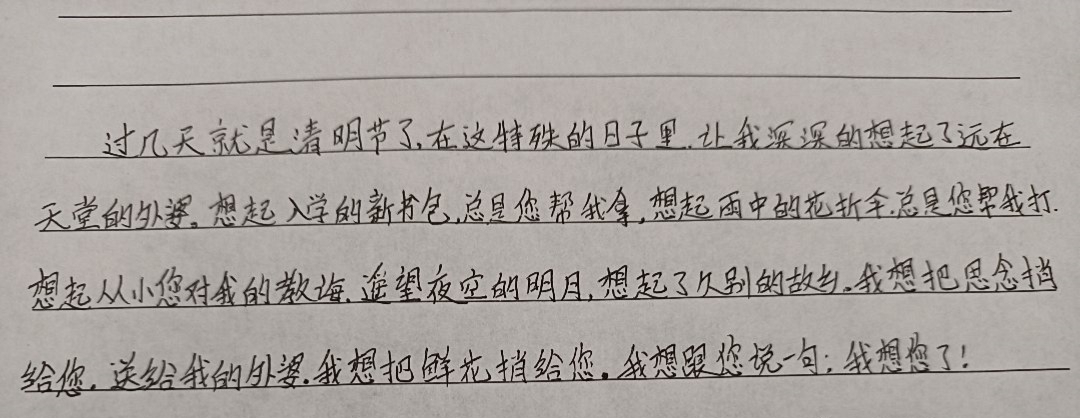 过几天就是清明节了,在这特殊的日子里,让我深深的想起了远在
天堂的外婆。想起入学的新书包,总是您帮我拿,想起雨中的花折伞,总是您帮我打.
想起从小您对我的教诲,遥望夜空的明月,想起了久别的故乡。我想把思念捎
给您,送给我的外婆.我想把鲜花捎给您。我想跟您说一句:我想您了!